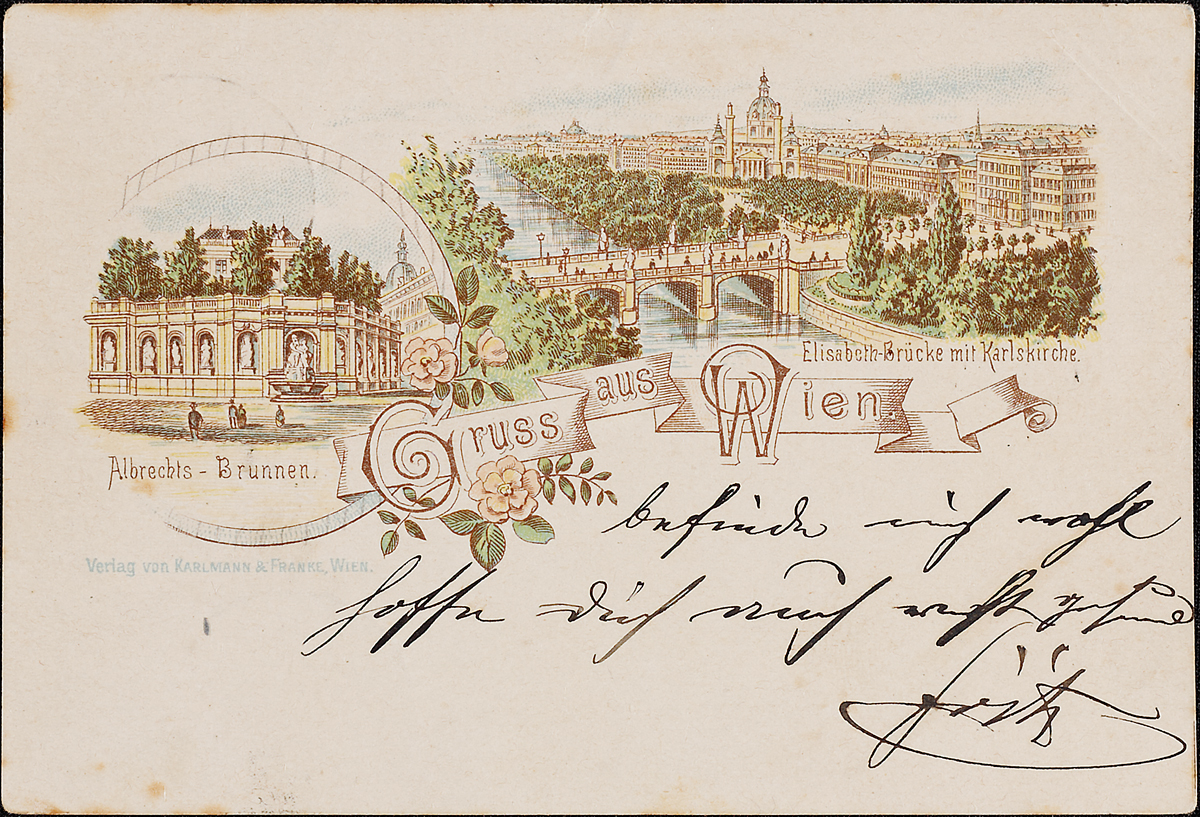 Elisabeth-Brücke mit Karlskirche.
Gruss aus Wien.
Albrechts-Brunnen.
Verlag von Karlmann & Franke, Wien.
befinde mich wohl
hoffe dich auch recht gesund